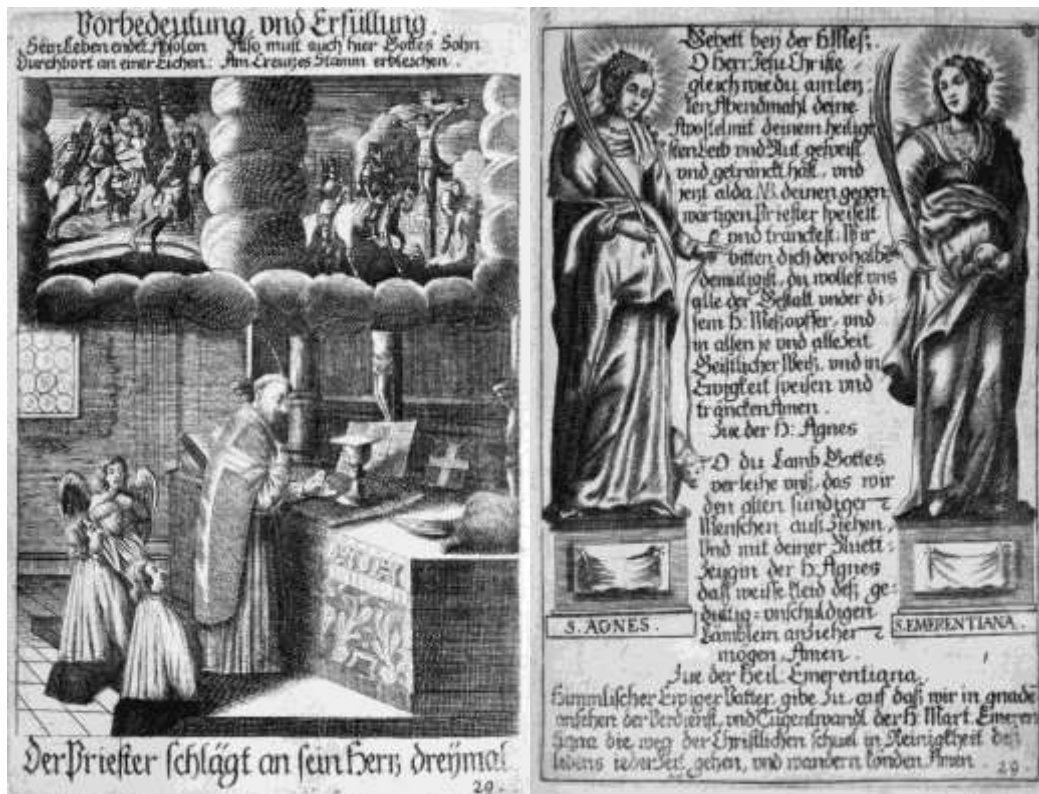 Vorbedeutung vnd Erfüllung.
Sein Leben endet Absolon Also must auch hier Gottes Sohn
Durchbort an einer Eichen: Am Creutzes Stamm erbleschen.
Der Priester schlägt an sein Hertz dreÿmal
29.
Gebett beÿ der H Mess.
O Herr Jesu Christe
gleich wie du am letz:
ten Abendmahl deine
Apostel mit deinem heilig:
sten Leib vnd Blut gespeist
vnd getränckt hast, vnd
jetzt alda NB. deinen gegen
wärtigen Priester speisest
vnd tranckest. Wir
bitten dich derohalbe
demütigst, du wollest vns
alle der Gestalt vnder di:
sem H: Meßopffer, vnd
in allen je vnd alle Zeit
Geistlicher Weiß, vnd in
Ewigkeit speisen vnd
träncken Amen.
Zue der H: Agnes
O du Lamb Gottes
verleihe vnß, das wir
den alten sündiger
Menschen auß Ziehen,
Vnd mit deiner Bluett:
Zeugin der H: Agnes
daß weisse Kleid deß ge:
dultig= vnschuldigen
Lämblein anziehen
mögen. Amen.
S. AGNES.
S. EMERENTIANA.
Zue der Heil. Emerentiana.
Himmlischer Ewiger Vatter, gibe Zu, auf daß wir in gnade
ansehen der Verdienst, vnd Tugentwandl der H: Mart. Emeren
tiana die weg der Christlichen schuel in Reinigkheit deß
lebens ieder Zeit gehen, vnd wandern könden Amen. 29.